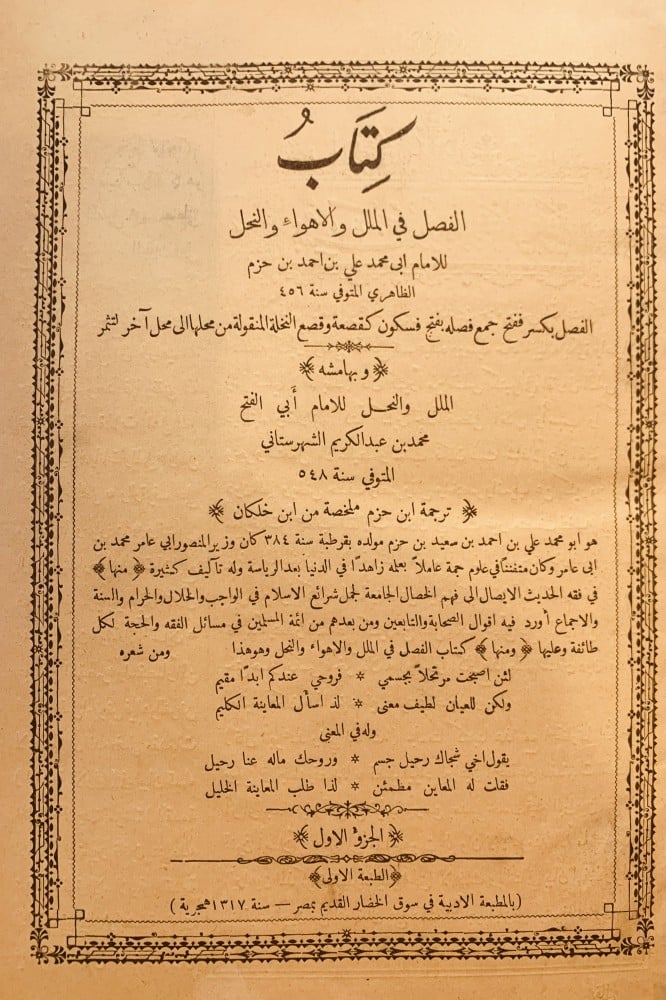 كِتَابُ
الفصل في الملل والاهواء والنحل
للامام ابى محمد علي بن احمد بن حزم
الظاهري المتوفي سنة ٤٥٦
الفصل بكسر ففتح جمع فصله بفتح فسكون كقصعة وقصع النخلة المنقولة من محلها الى محل آخر لتثمر
﴿ وبهامشه ﴾
الملل والنحل للامام أبي الفتح
محمد بن عبد الكريم الشهرستاني
المتوفي سنة ٥٤٨
﴿ ترجمة ابن حزم ملخصة من ابن خلكان ﴾
هو ابو محمد علي بن احمد بن سعيد بن حزم مولده بقرطبة سنة ٣٨٤ كان وزير المنصور ابي عامر محمد بن
ابى عامر وكان متفننًا في علوم جمة عاملاً بعمله زاهدًا في الدنيا بعد الرياسة وله تآليف كثيرة ﴿ منها ﴾
في فقه الحديث الايصال الى فهم الخصال الجامعة لجمل شرائع الاسلام في الواجب والحلال والحرام والسنة
والاجماع أورد فيه اقوال الصحابة والتابعين ومن بعدهم من ائمة المسلمين في مسائل الفقه والحجة لكل
طائفة وعليها ﴿ ومنها ﴾ كتاب الفصل في الملل والاهواء والنحل وهو هذا ومن شعره
لئن اصبحت مرتحلاً بجسمي * فروحي عندكم ابدًا مقيم
ولكن للعيان لطيف معنى * لذا سأل المعاينة الكليم
وله في المعنى
يقول اخي شجاك رحيل جسم * وروحك ماله عنا رحيل
فقلت له المعاين مطمئن * لذا طلب المعاينة الخليل
﴿ الجزؤ الاول ﴾
﴿ الطبعة الاولى ﴾
(بالمطبعة الادبية في سوق الخضار القديم بمصر — سنة ١٣١٧ هجرية)